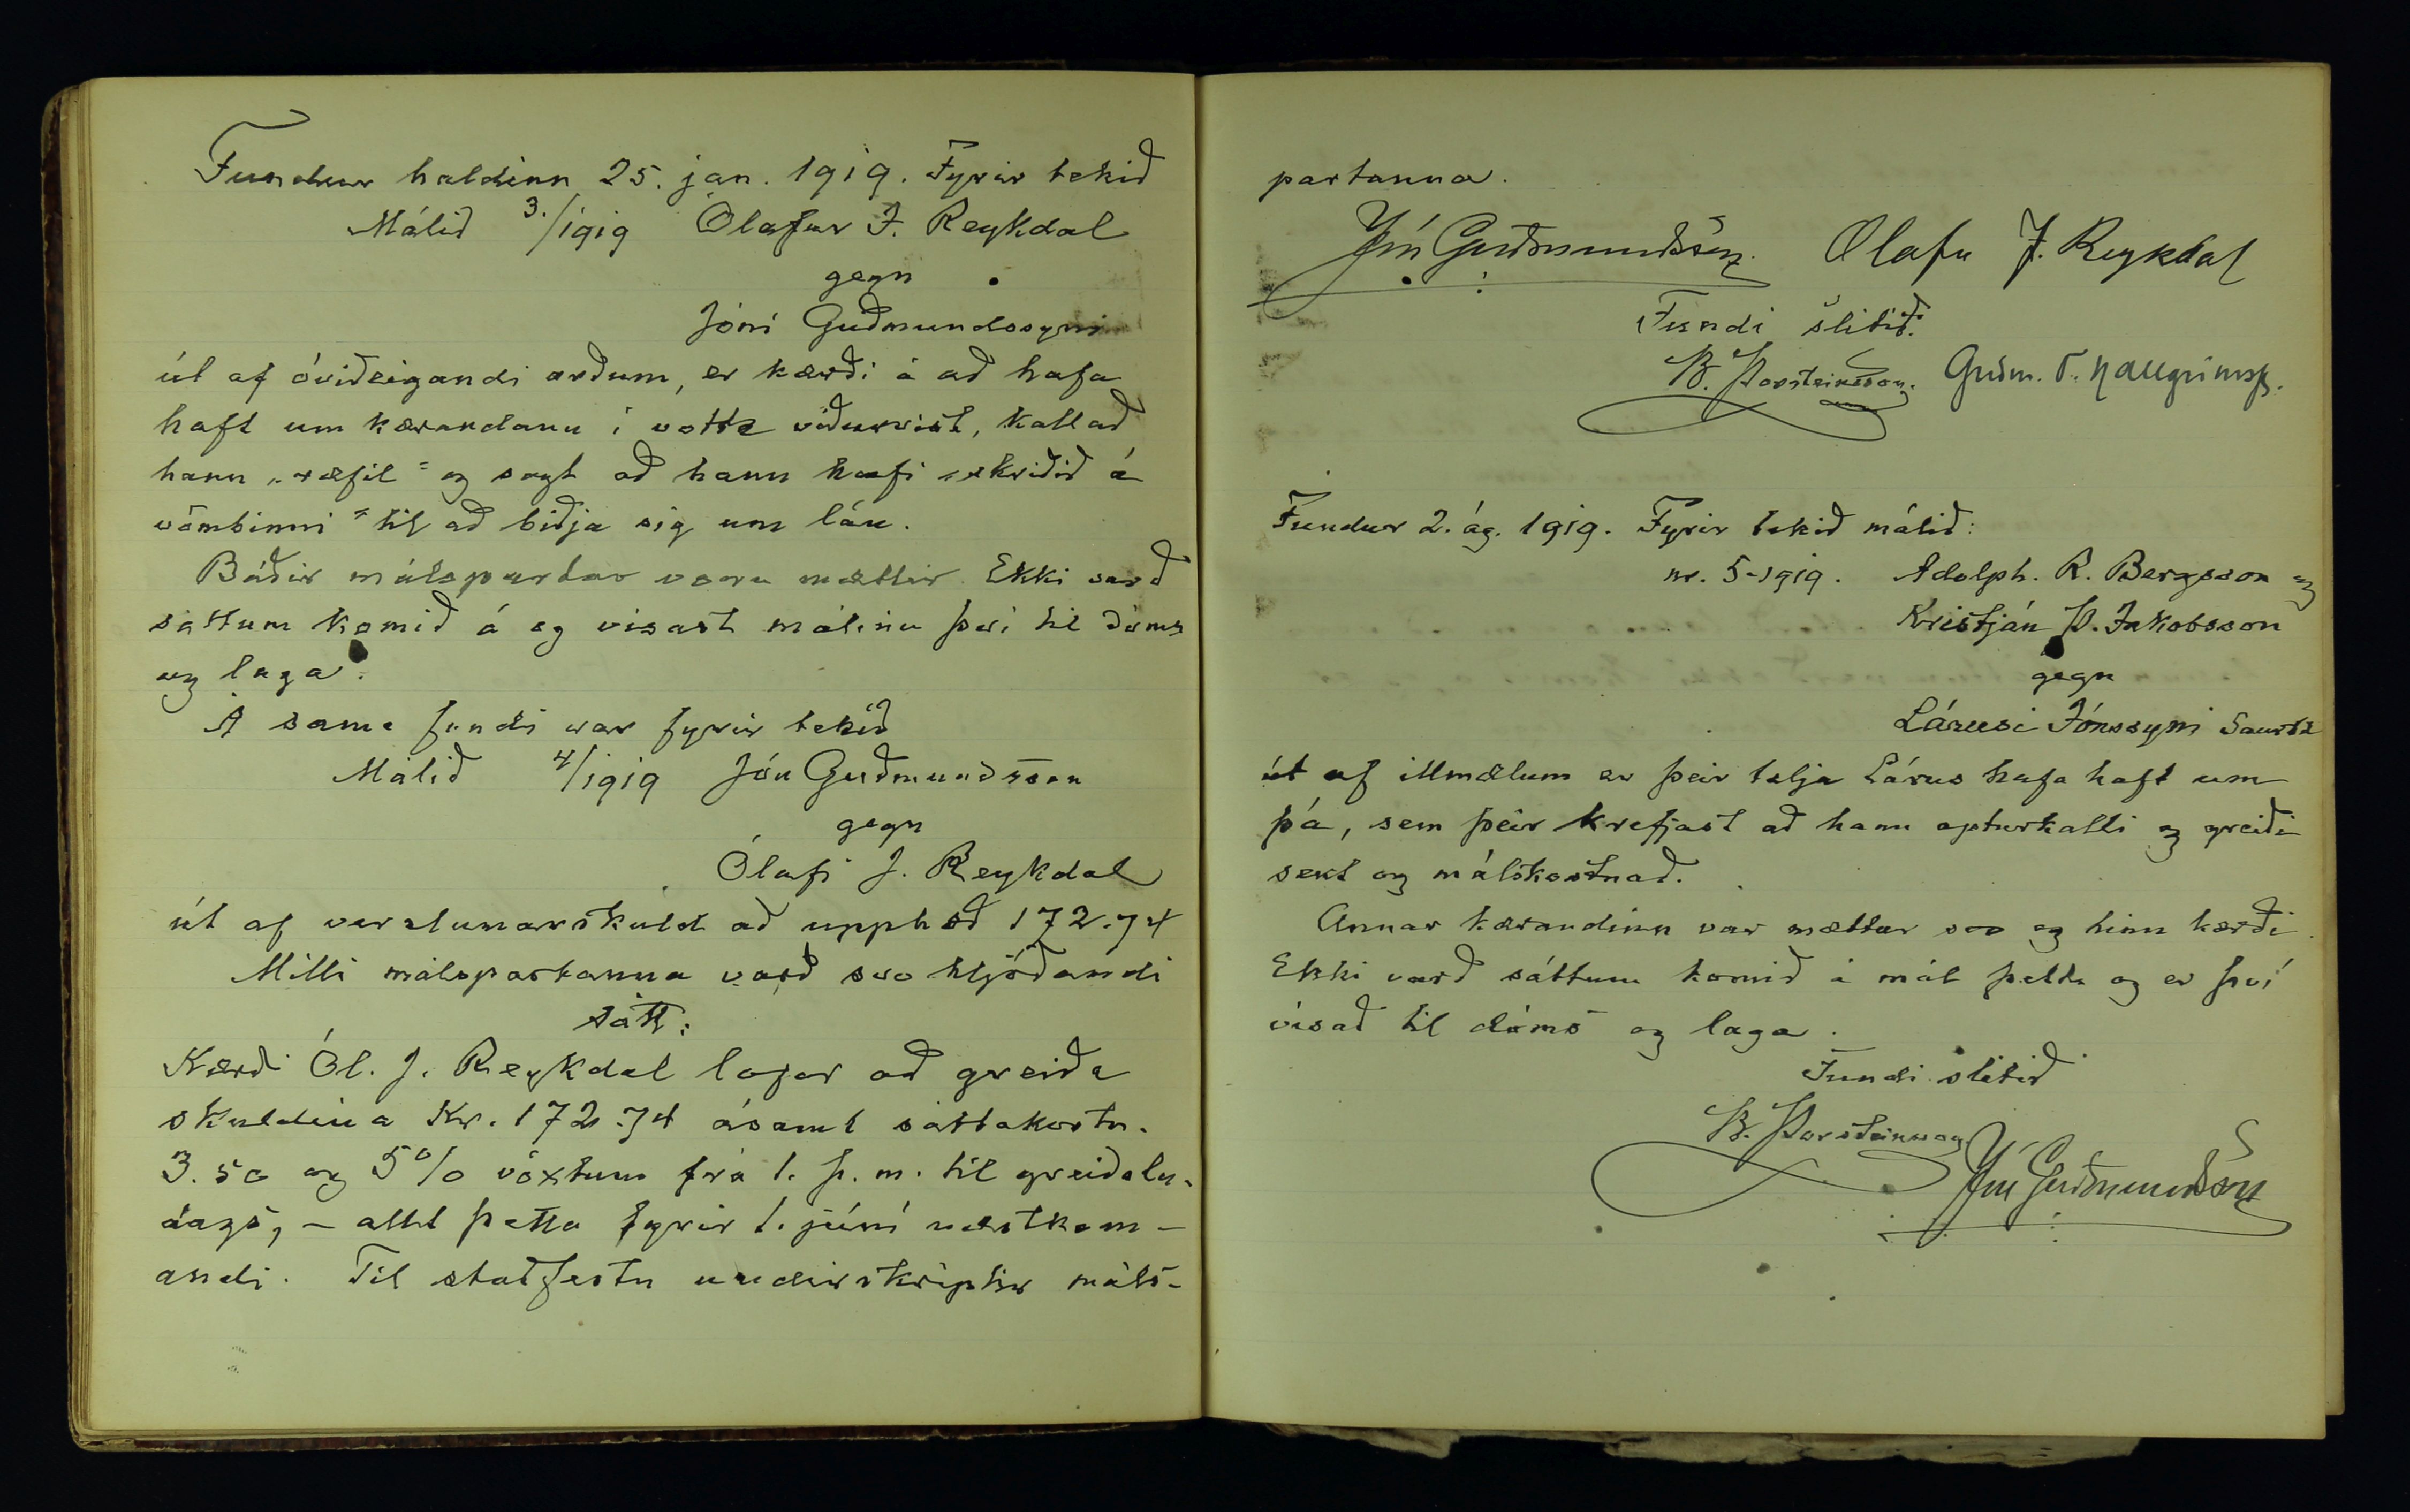 Fundur haldinn 25. jan. 1919. Fyrir tekið
Málið 3./1919 Ólafur J. Reykdal
gegn
Jóni Guðmundssyni
út af óviðeigandi orðum, er kærði á að hafa
haft um kærandann í votta viðurvist, kallað
hann „ræfil“ og sagt að hann hafi „skriðið á
vömbinni“ til að biðja sig um lán.
Báðir málspartar voru mættir. Ekki varð
sáttum komið á og vísast málinu því til dóms
og laga.
Á sama fundi var fyrir tekið
Málið 4/1919 Jón Guðmundsson
gegn
Ólafi J. Reykdal
út af verzlunarskuld að upphæð 172.74
Milli málspartanna varð svo hljóðandi
sátt:
Kærði Ól. J. Reykdal lofar að greiða
skuldina Kr. 172.74 ásamt sáttakostn.
3.50 og 5% vöxtum frá 1. þ. m. til greiðslu-
dags, - allt þetta fyrir 1. júní næstkom-
andi. Til staðfestu undirskriptir máls-
partanna.
Jón Guðmundsson. Olafu J. Reykdal
Fundi slitið.
B. Þorsteinsson. Guðm. Hallgrímss.
Fundur 2. ág. 1919. Fyrir tekið málið:
nr. 5-1919. Adolph. R. Bergsson og
Kristján Þ. Jakobsson
gegn
Lárusi Jónssyni
út af illmælum er þeir telja Lárus hafa haft um
þá, sem þeir krefjast að hann apturkalli og greiði
sekt og málskostnað.
Annar kærandinn var mættur svo og hinn kærði.
Ekki varð sáttum komið á mál þetta og er því
vísað til dóms og laga.
Fundi slitið
B. Þorsteinsson
Jón Guðmundsson